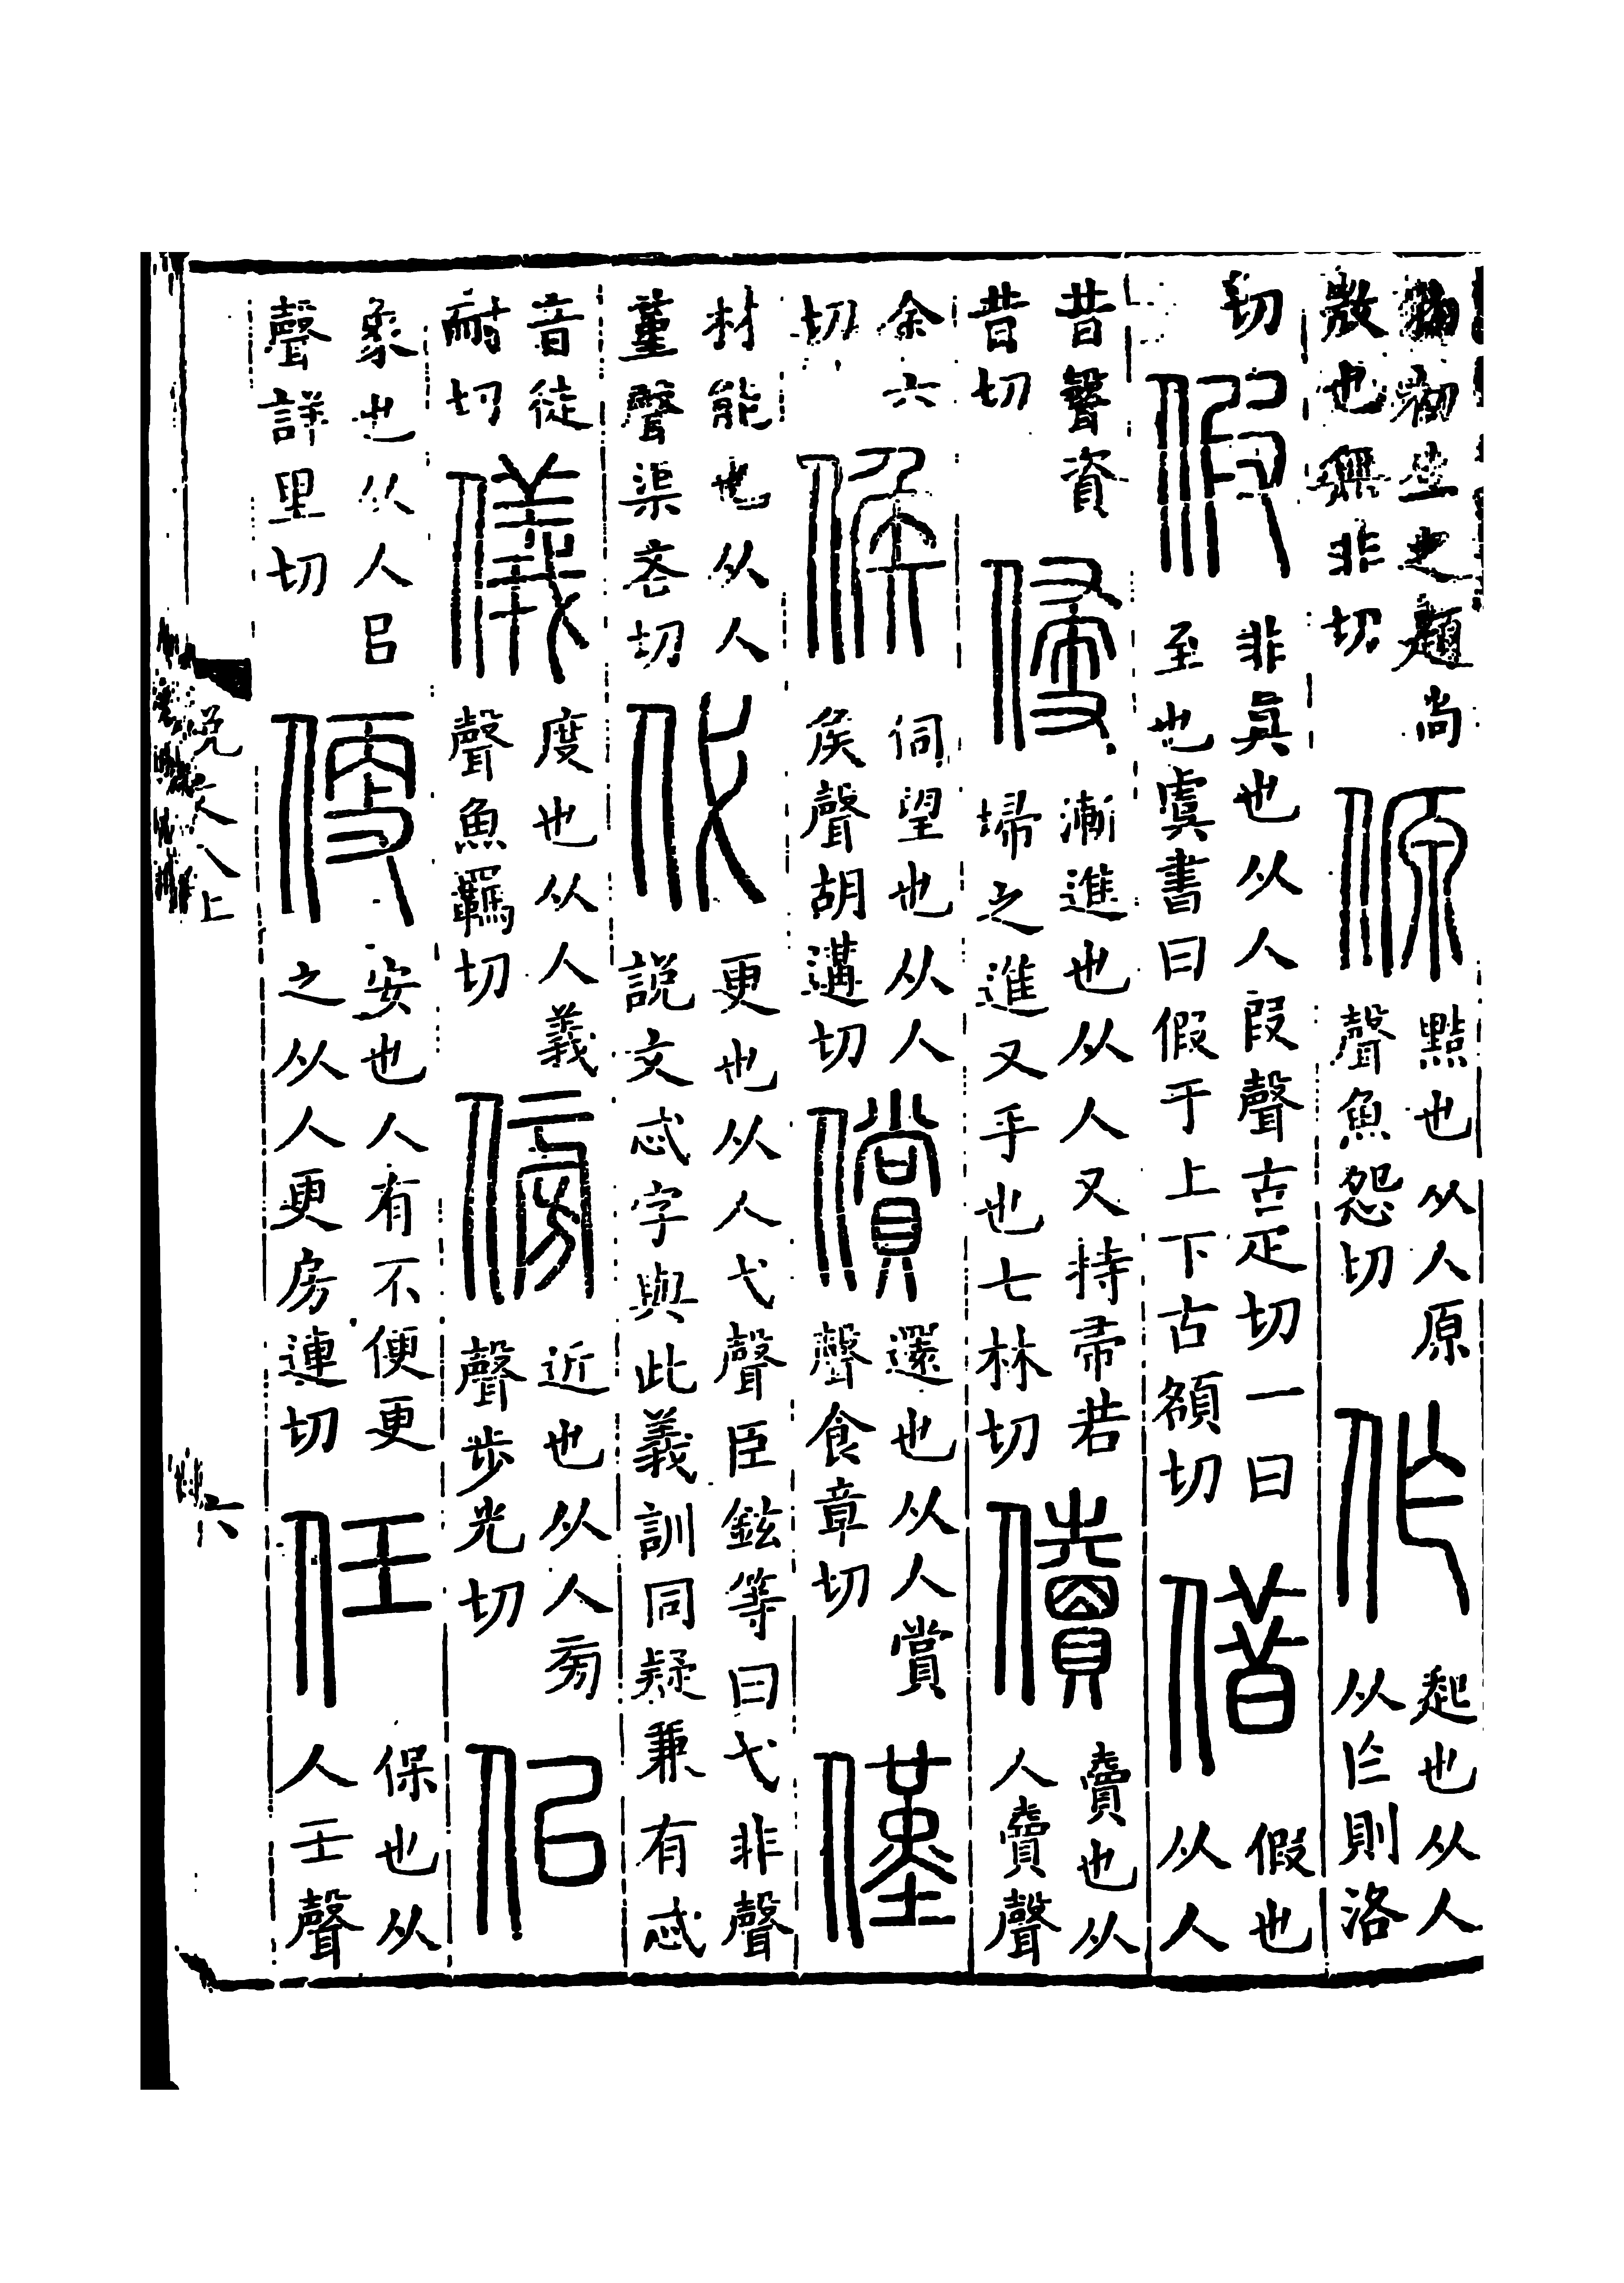 物初生之題尚𢼸也無非切傆黠也从人原聲魚怨切作起也从人从乍則洛
切假非眞也从人叚聲古疋切一曰至也虞書曰假于上下古頟切借假也从人
昔聲資昔切侵漸進也从人又持帚若埽之進又手也七林切儥賣也从人𧶠聲
余六切候伺望也从人矦聲胡遘切償還也从人賞聲食章切僅
材能也从人堇聲渠吝切代更也从人弋聲臣鉉等曰弋非聲說文忒字與此義訓同疑兼有忒
音徒耐切儀度也从人義聲魚羈切傍近也从人㫄聲步光切佀
象也从人㠯聲詳里切便安也人有不便更之从人更房連切任保也从人壬聲
說文八上
六